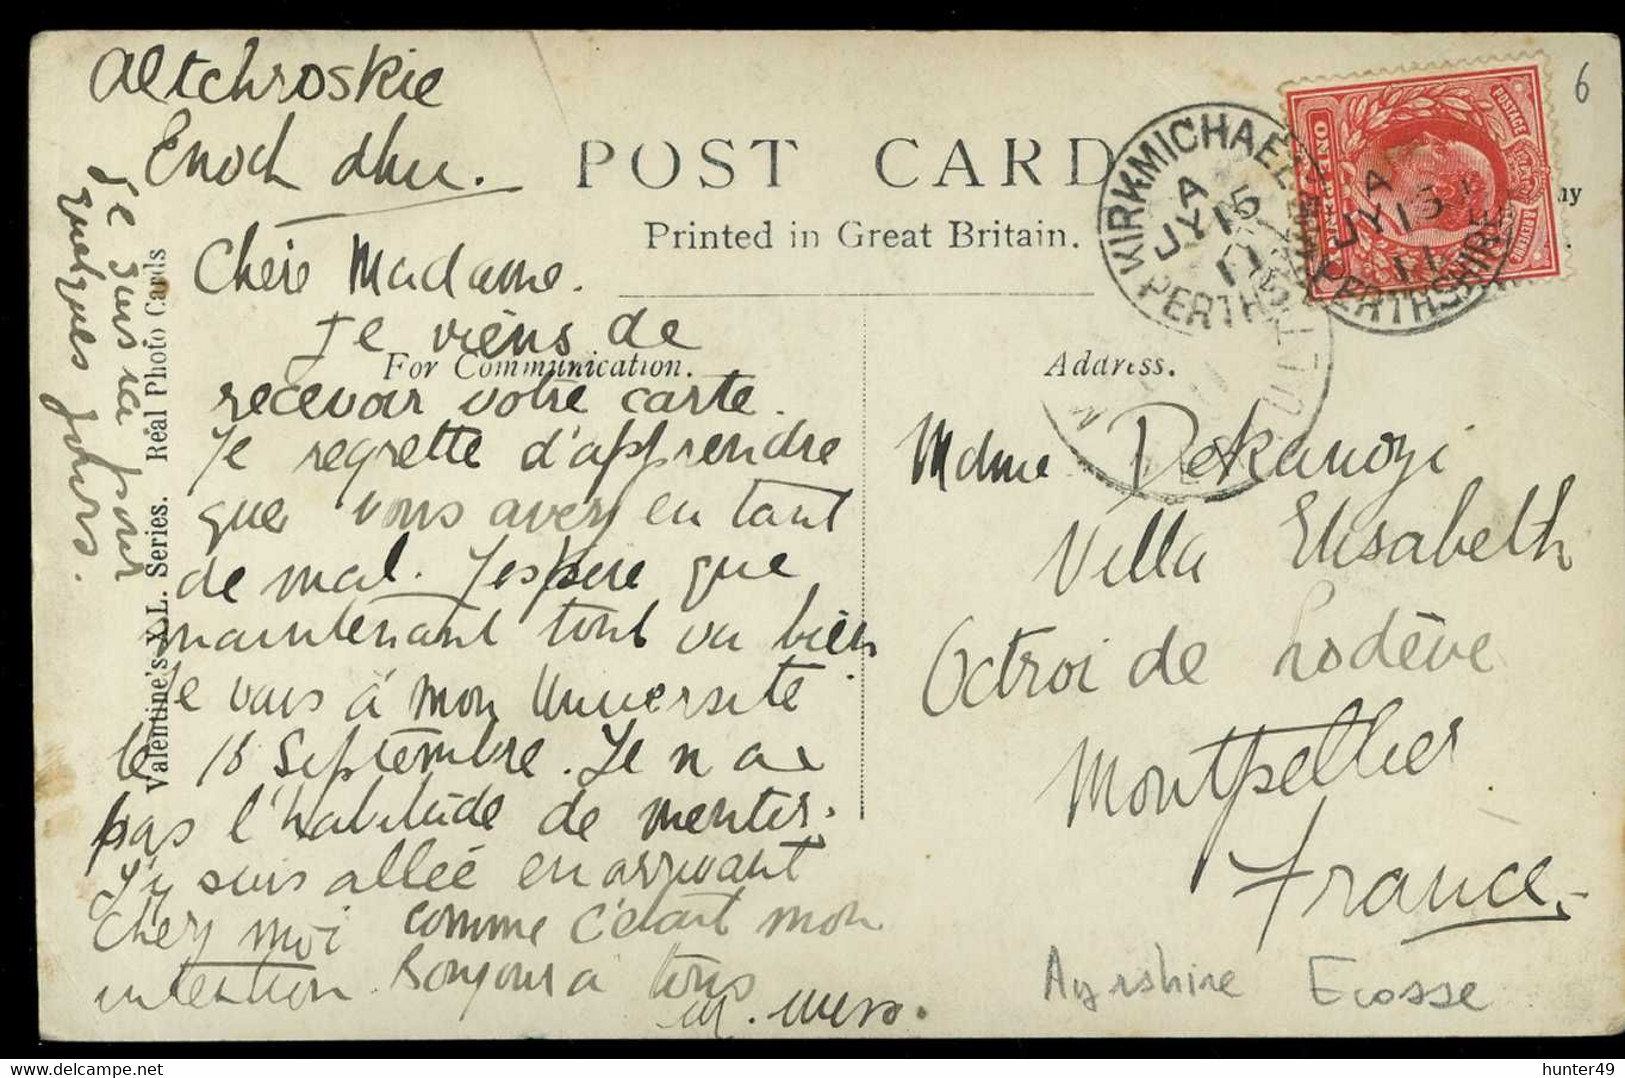 Altchroskie
Enoch dhu.
POST CARD
Printed in Great Britain.
Chère Madame.
Je viens de
For Communication.
recevoir votre carte.
Je regrette d'apprendre
que vous avez en tant
de mal. J'espère que
maintenant tout va bien.
Je vais à mon Université
le 18 Septembre. Je n ai
pas l'habitude de mentir.
J'y suis allée en arrivant
chez moi comme c'était mon
intention. Bonjour a tous
M.
Je suis ici pour
quelques jours.
Valentine's X.L. Series. Real Photo Cards
KIRKMICHAEL
A
JY 15
11
PERTHSHIRE
KIRKMICHAEL
A
JY 15
11
PERTHSHIRE
POSTAGE
ONE PENNY
6
Address.
Mdme Dekanozi
Villa Elisabeth
Octroi de Lodève
Montpellier
France.
Ayrshire Ecosse
hunter49